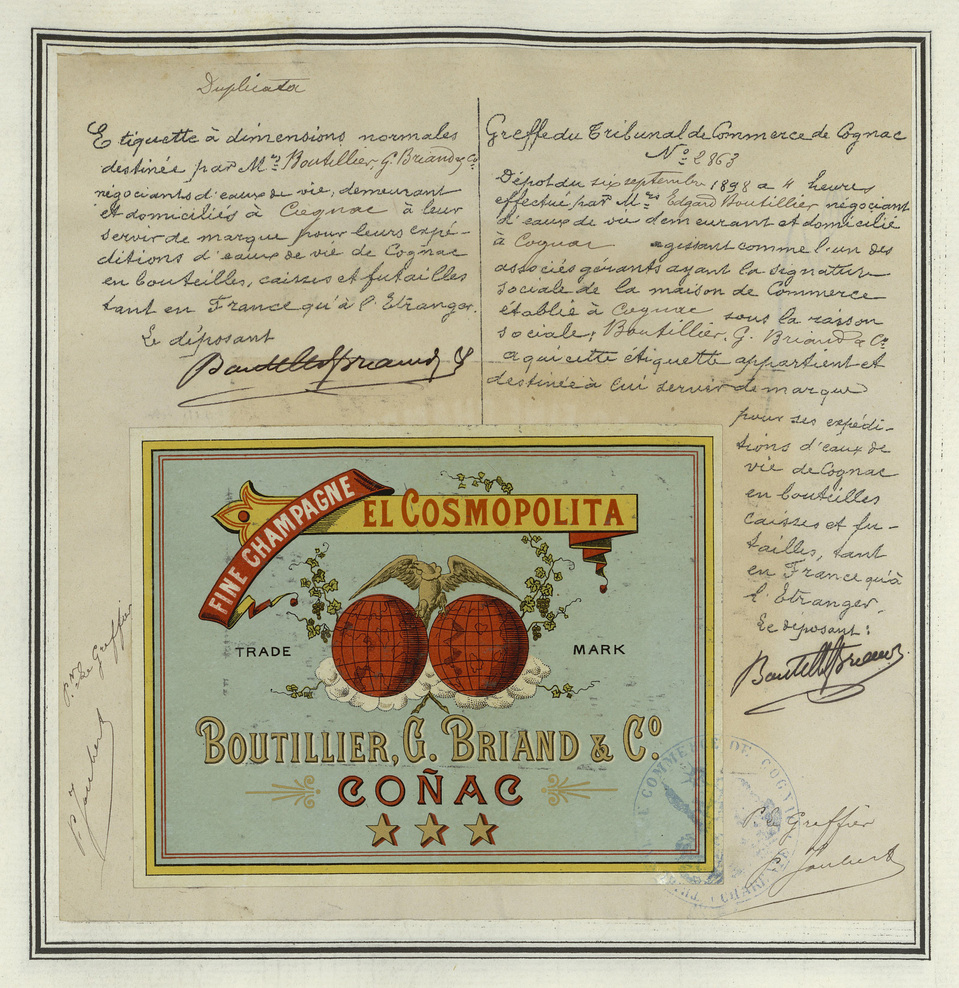 Duplicata
Etiquette à dimensions normales
destinée par Mrs Boutillier, G. Briand & Co.
négociants d'eaux de vie, demeurant
et domiciliés à Cognac à leur
servir de marque pour leurs expé-
ditions d'eaux de vie de Cognac
en bouteilles, caisses et futailles
tant en France qu'à l'Etranger.
Le déposant
Boutillier Briand &
Greffe du Tribunal de Commerce de Cognac
No 2863
Dépôt du six septembre 1898 a 4 heures
effectué par Mr Edgard Boutillier négociant
d'eaux de vie demeurant et domicilié
à Cognac agissant comme l'un des
associés gérants ayant la signature
sociale de la maison de Commerce
établie à Cognac sous la raison
sociale, Boutillier, G. Briand & Co
a qui cette étiquette appartient et
destinée à lui servir de marque
pour ses expédi-
tions d'eaux de
vie de Cognac
en bouteilles
caisses et fu-
tailles, tant
en France qu'à
l'Etranger.
Le déposant:
Boutillier Briand
FINE CHAMPAGNE
EL COSMOPOLITA
TRADE MARK
BOUTILLIER, G. BRIAND & Co
COÑAC
COMMERCE DE COGNAC
CHARENTE
P. le Greffier
P. Joubert
Pr Le Greffier
P. Joubert